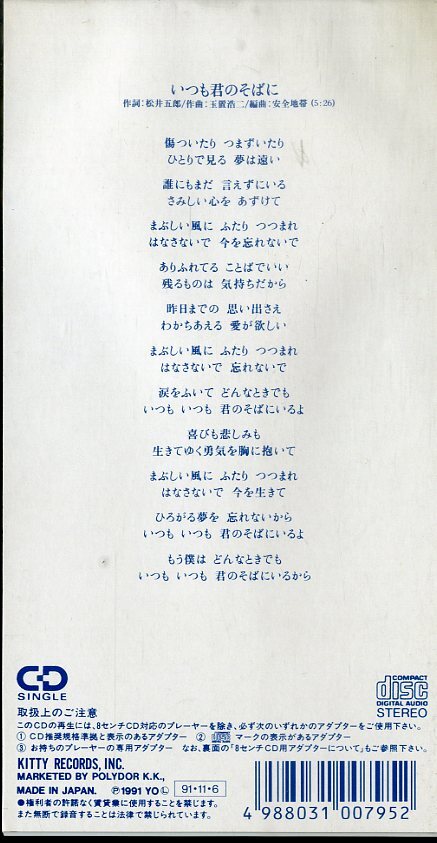 いつも君のそばに
作詞:松井五郎/作曲:玉置浩二/編曲:安全地帯 (5:26)
傷ついたり つまずいたり
ひとりで見る 夢は遠い
誰にもまだ 言えずにいる
さみしい心を あずけて
まぶしい風に ふたり つつまれ
はなさないで 今を忘れないで
ありふれてる ことばでいい
残るものは 気持ちだから
昨日までの 思い出さえ
わかちあえる 愛が欲しい
まぶしい風に ふたり つつまれ
はなさないで 忘れないで
涙をふいて どんなときでも
いつも いつも 君のそばにいるよ
喜びも悲しみも
生きてゆく勇気を胸に抱いて
まぶしい風に ふたり つつまれ
はなさないで 今を生きて
ひろがる夢を 忘れないから
いつも いつも 君のそばにいるよ
もう僕は どんなときでも
いつも いつも 君のそばにいるから
CD
SINGLE
COMPACT
disc
DIGITAL AUDIO
STEREO
取扱上のご注意
このCDの再生には、8センチCD対応のプレーヤーを除き、必ず次のいずれかのアダプターをご使用下さい。
① CD推奨規格準拠と表示のあるアダプター ② マークの表示があるアダプター
③ お持ちのプレーヤーの専用アダプター なお、裏面の「8センチCD用アダプターについて」もご参照下さい。
KITTY RECORDS, INC.
MARKETED BY POLYDOR K.K.,
MADE IN JAPAN. Ⓟ1991 YO Ⓛ 91·11·6
●権利者の許諾なく賃貸業に使用することを禁じます。
また無断で録音することは法律で禁じられています。
4 988031 007952